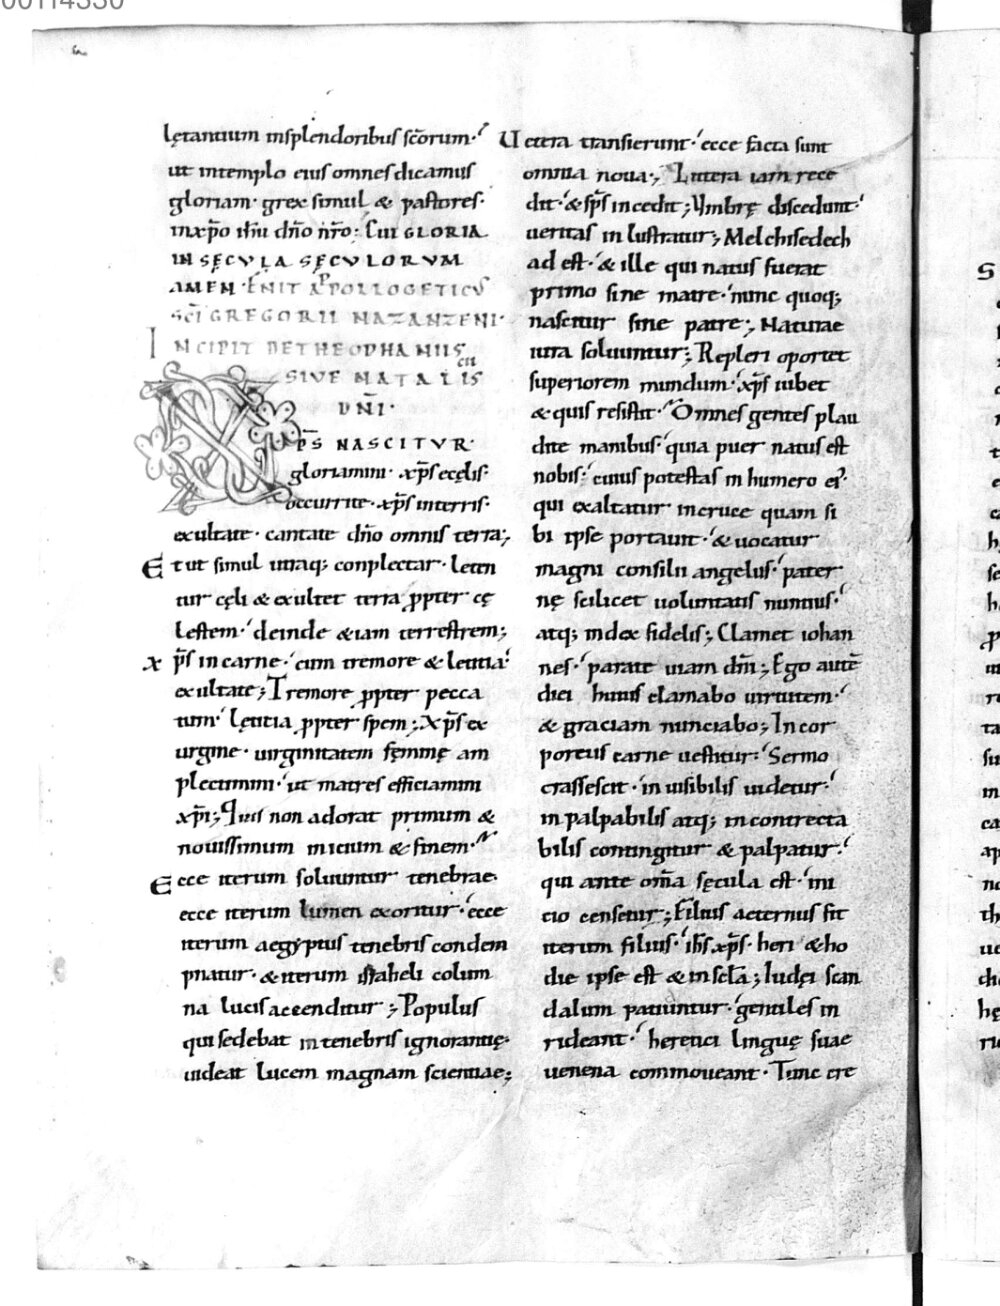 00114330
lętantium insplendoribus sc̄orum·
ut intemplo eius omnes dicamus
gloriam· grex simul & pastores·
inxp̄o ih̄u dn̄o nr̄o· Cui GLORIA
IN SĘCVLA SĘCVLORVM
AMEN· FINIT APOLLOGETICVS
SC̄I GREGORII NAZANZENI·
INCIPIT DE THEOPHANIIS
SIVE NATALIS
DN̄I·
XP̄S NASCITVR·
gloriamini· xp̄s ecęlis·
occurrite· xp̄s interris·
exultate· cantate dn̄o omnis terra;
Et ut simul utraq; conplectar· leten
tur cęli & exultet terra ꝓpter cę
lestem· deinde &iam terrestrem;
xp̄s in carne· cum tremore & letitia
exultate; Tremore ꝓpter pecca
tum· lętitia ꝓpter spem; Xp̄s ex
uirgine· uirginitatem fęminę am
plectimini· ut matres efficiamini
xp̄i; Quis non adorat primum &
nouissimum initium & finem·
Ecce iterum soluuntur tenebrae·
ecce iterum lumen exoritur· ecce
iterum aegyptus tenebris condem
pnatur· & iterum israheli colum
na lucis accenditur; Populus
qui sedebat in tenebris ignorantię·
uideat lucem magnam scientiae;
Uetera transierunt· ecce facta sunt
omnia noua; Littera iam rece
dit· & sp̄s incedit; Vmbrę discedunt·
ueritas in lustratur; Melchisedech
ad est· & ille qui natus fuerat
primo sine matre· nunc quoq;
nascitur sine patre; Naturae
iura soluuntur; Repleri oportet
superiorem mundum· xp̄s iubet
& quis resistit· Omnes gentes plau
dite manibus· quia puer natus est
nobis· cuius potestas in humero ei'·
qui exaltatur incruce quam si
bi ipse portauit· & uocatur
magni consilii angelus· pater
nę scilicet uoluntatis nuntius·
atq; index fidelis; Clamet iohan
nes· parate uiam dn̄i; Ego autē
diei huius clamabo uirtutem·
& graciam nunciabo; Incor
poreus carne uestitur· Sermo
crassescit· in uisibilis uidetur·
in palpabilis atq; in contrecta
bilis contingitur & palpatur·
qui ante om̄a sęcula est· ini
cio censetur; Filius aeternus fit
iterum filius· ih̄s xp̄s· heri & ho
die ipse est & in sc̄la; Iudęi scan
dalum patiuntur· gentiles in
rideant· heretici linguę suae
uenena commoueant· Tunc cre